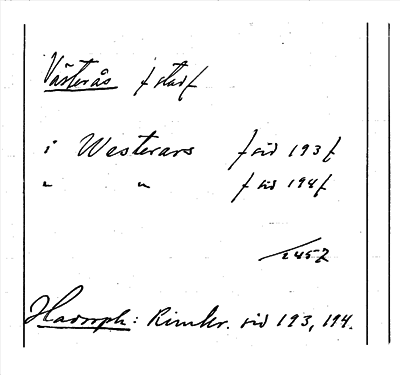 Västerås f stad f
i Westerars f sid 193 f
" " f sid 194 f
1457
Hadorph: Rimkr. sid 193, 194.